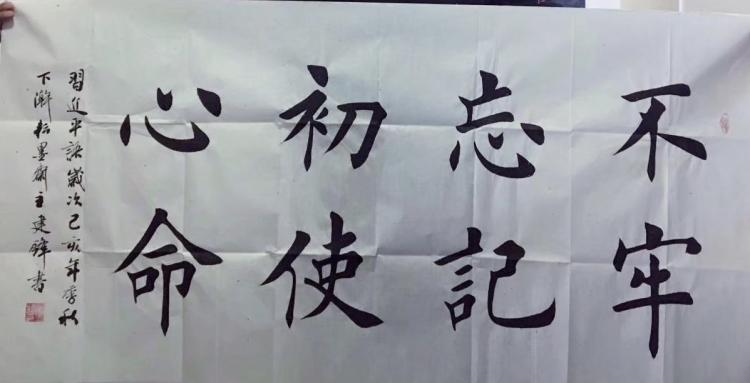 不忘初心
牢記使命
習近平語歲次己亥年季秋
下澣墨齋主建鋒書